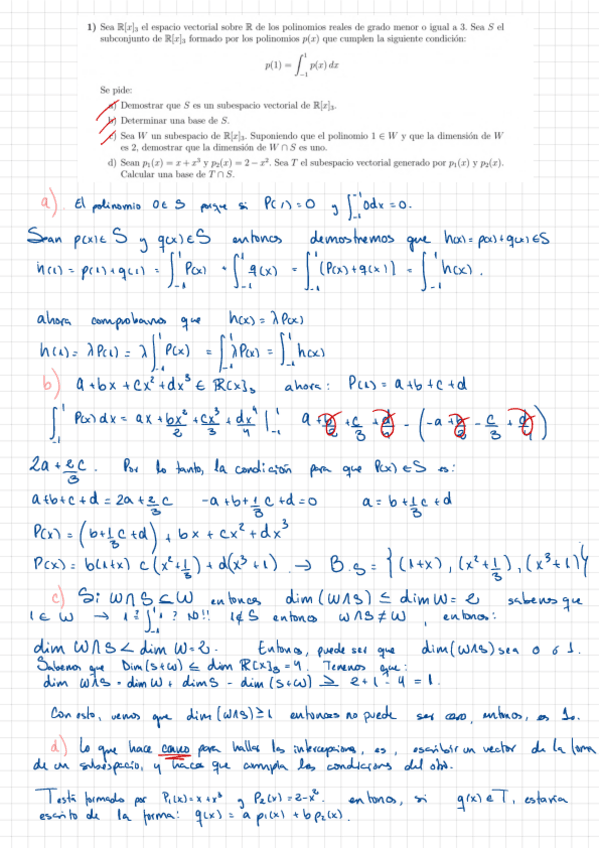 1) Sea ℝ[x]₃ el espacio vectorial sobre ℝ de los polinomios reales de grado menor o igual a 3. Sea S el
subconjunto de ℝ[x]₃ formado por los polinomios p(x) que cumplen la siguiente condición:
p(1) = ∫₋₁¹ p(x) dx
Se pide:
a) Demostrar que S es un subespacio vectorial de ℝ[x]₃.
b) Determinar una base de S.
c) Sea W un subespacio de ℝ[x]₃. Suponiendo que el polinomio 1 ∈ W y que la dimensión de W
es 2, demostrar que la dimensión de W ∩ S es uno.
d) Sean p₁(x) = x + x³ y p₂(x) = 2 − x². Sea T el subespacio vectorial generado por p₁(x) y p₂(x).
Calcular una base de T ∩ S.
a). El polinomio 0 ∈ S porque si P(1) = 0 y ∫₋₁¹ 0dx = 0.
Sean p(x) ∈ S y q(x) ∈ S entonces demostremos que h(x) = p(x) + q(x) ∈ S
h(1) = p(1) + q(1) = ∫₋₁¹ P(x) + ∫₋₁¹ q(x) = ∫₋₁¹ (P(x) + q(x)) = ∫₋₁¹ h(x).
ahora comprobamos que h(x) = λP(x)
h(1) = λP(1) = λ∫₋₁¹ P(x) = ∫₋₁¹ λP(x) = ∫₋₁¹ h(x)
b) a + bx + cx² + dx³ ∈ ℝ[x]₃ ahora: P(1) = a + b + c + d
∫₋₁¹ P(x) dx = ax + bx²/2 + cx³/3 + dx⁴/4 |₋₁¹ a + b/2 + c/3 + d/4 − (−a + b/2 − c/3 + d/4)
2a + 2c/3. Por lo tanto, la condición para que P(x) ∈ S es:
a + b + c + d = 2a + 2/3 c −a + b + 1/3 c + d = 0 a = b + 1/3 c + d
P(x) = (b + 1/3 c + d) + bx + cx² + dx³
P(x) = b(1+x) c(x² + 1/3) + d(x³ + 1) → B.S = {(1+x), (x² + 1/3), (x³ + 1)}
c) Si W∩S ⊆ W entonces dim (W∩S) ≤ dim W = 2 sabemos que
1 ∈ W → 1 ? ∫₋₁¹ 1 ? NO!! 1 ∉ S entonces W∩S ≠ W, entonces:
dim W∩S < dim W = 2. Entonces, puede ser que dim (W∩S) sea 0 ó 1.
Sabemos que Dim (S+W) ≤ dim ℝ[x]₃ = 4. Tenemos que:
dim W∩S = dim W + dim S − dim (S+W) ≥ 2 + 1 − 4 = 1.
Con esto, vemos que dim (W∩S) ≥ 1 entonces no puede ser cero, entonces, es 1.
d) Lo que hace para hallar las intersecciones, es, escribir un vector de la forma
de un subespacio, y hacer que cumpla las condiciones del otro.
T está formado por P₁(x) = x + x³ y P₂(x) = 2 − x². entonces, si q(x) ∈ T, estaría
escrito de la forma: q(x) = a p₁(x) + b p₂(x).